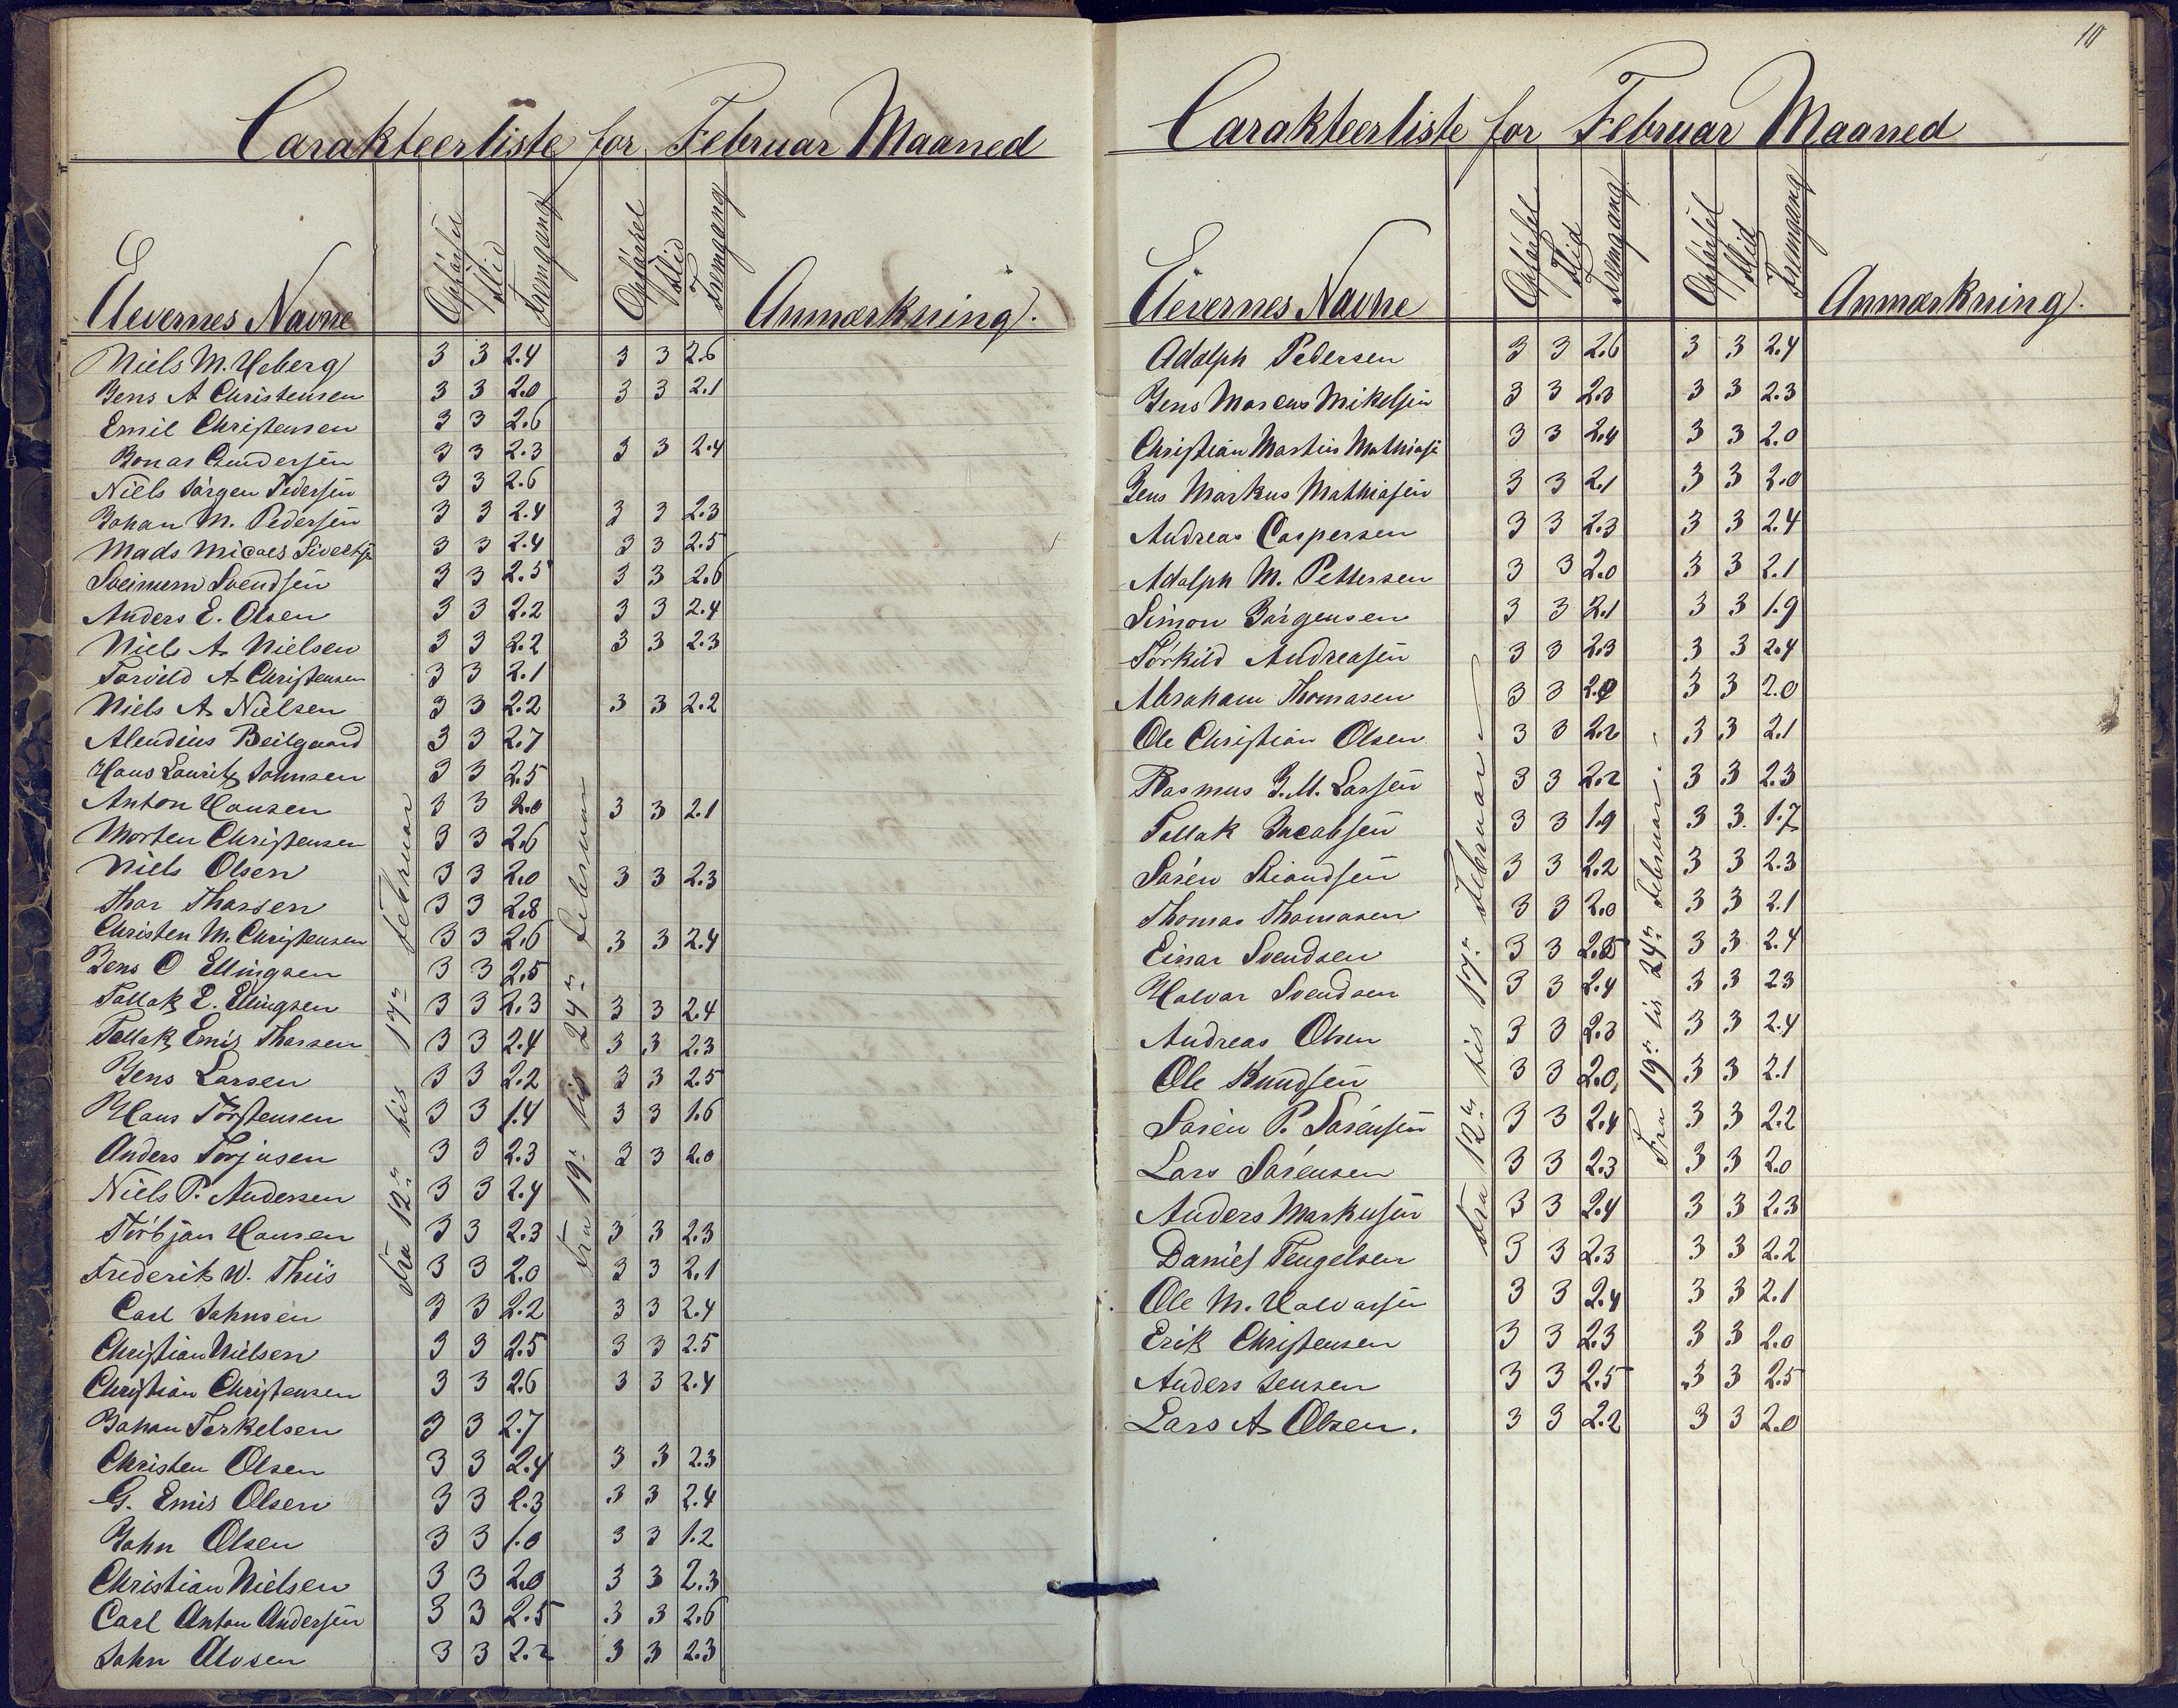 Carakteerliste for Februar Maaned
Elevernes Navne Opførsel Flid Fremgang Opførsel Flid Fremgang Anmærkning.
Fra 12te til 17de Februar
Fra 19de til 24de Februar
Niels M. Heberg 3 3 2.4 3 3 2.6
Jens A Christensen 3 3 2.0 3 3 2.1
Emil Christensen 3 3 2.6
Gundersen 3 3 2.3 3 3 2.4
Niels Jørgen Pedersen 3 3 2.6
Johan M. Pedersen 3 3 2.4 3 3 2.3
Mads 3 3 2.4 3 3 2.5
Svendsen 3 3 2.5 3 3 2.6
Anders E. Olsen 3 3 2.2 3 3 2.4
Niels A. Nielsen 3 3 2.2 3 3 2.3
Torvild A Christensen 3 3 2.1
Niels A. Nielsen 3 3 2.2 3 3 2.2
Beilgaard 3 3 2.7
Hans Lauritz Johnsen 3 3 2.5
Anton Hansen 3 3 2.0 3 3 2.1
Morten Christensen 3 3 2.6
Niels Olsen 3 3 2.0 3 3 2.3
Thor Thorsen 3 3 2.8
Christen M. Christensen 3 3 2.6 3 3 2.4
Jens O Ellingsen 3 3 2.5
Tallak E. Ellingsen 3 3 2.3 3 3 2.4
Tallak Emil Thorsen 3 3 2.4 3 3 2.3
Jens Larsen 3 3 2.2 3 3 2.5
Hans Torstensen 3 3 1.4 3 3 1.6
Anders Torjusen 3 3 2.3 3 3 2.0
Niels P. Andersen 3 3 2.4
Torbjørn Hansen 3 3 2.3 3 3 2.3
Frederik W. Thiis 3 3 2.0 3 3 2.1
Carl Johnsen 3 3 2.2 3 3 2.4
Christian Nielsen 3 3 2.5 3 3 2.5
Christian Christensen 3 3 2.6 3 3 2.4
Johan Terkelsen 3 3 2.7
Christen Olsen 3 3 2.4 3 3 2.3
G. Emil Olsen 3 3 2.3 3 3 2.4
John Olsen 3 3 1.0 3 3 1.2
Christian Nielsen 3 3 2.0 3 3 2.3
Carl Anton Andersen 3 3 2.5 3 3 2.6
John Olvsen 3 3 2.2 3 3 2.3
10
Carakteerliste for Februar Maaned
Elevernes Navne Opførsel Flid Fremgang Opførsel Flid Fremgang Anmærkning.
Fra 12te til 17de Februar
Fra 19de til 24de Februar.
Adolph Pedersen 3 3 2.6 3 3 2.4
Jens Marcus Mikelsen 3 3 2.3 3 3 2.3
Christian Martin Mathias 3 3 2.4 3 3 2.0
Jens Markus Mathiasen 3 3 2.1 3 3 2.0
Andreas Caspersen 3 3 2.3 3 3 2.4
Adolph M. Pettersen 3 3 2.0 3 3 2.1
Simon Jørgensen 3 3 2.1 3 3 1.9
Torkild Andreasen 3 3 2.3 3 3 2.4
Abraham Thomasen 3 3 2.0 3 3 2.0
Ole Christian Olsen 3 3 2.2 3 3 2.1
Rasmus J. M. Larsen 3 3 2.2 3 3 2.3
Tallak Jacobsen 3 3 1.9 3 3 1.7
Søren 3 3 2.2 3 3 2.3
Thomas Thomasen 3 3 2.0 3 3 2.1
Einar Svendsen 3 3 2.5 3 3 2.4
Halvor Svendsen 3 3 2.4 3 3 2.3
Andreas Olsen 3 3 2.3 3 3 2.4
Ole Knudsen 3 3 2.0 3 3 2.1
Søren P. Sørensen 3 3 2.4 3 3 2.2
Lars Sørensen 3 3 2.3 3 3 2.0
Anders Markusen 3 3 2.4 3 3 2.3
Daniel Tengelsen 3 3 2.3 3 3 2.2
Ole M. Halvorsen 3 3 2.4 3 3 2.1
Erik Christensen 3 3 2.3 3 3 2.0
Anders Jensen 3 3 2.5 3 3 2.5
Lars A. Olsen. 3 3 2.2 3 3 2.0